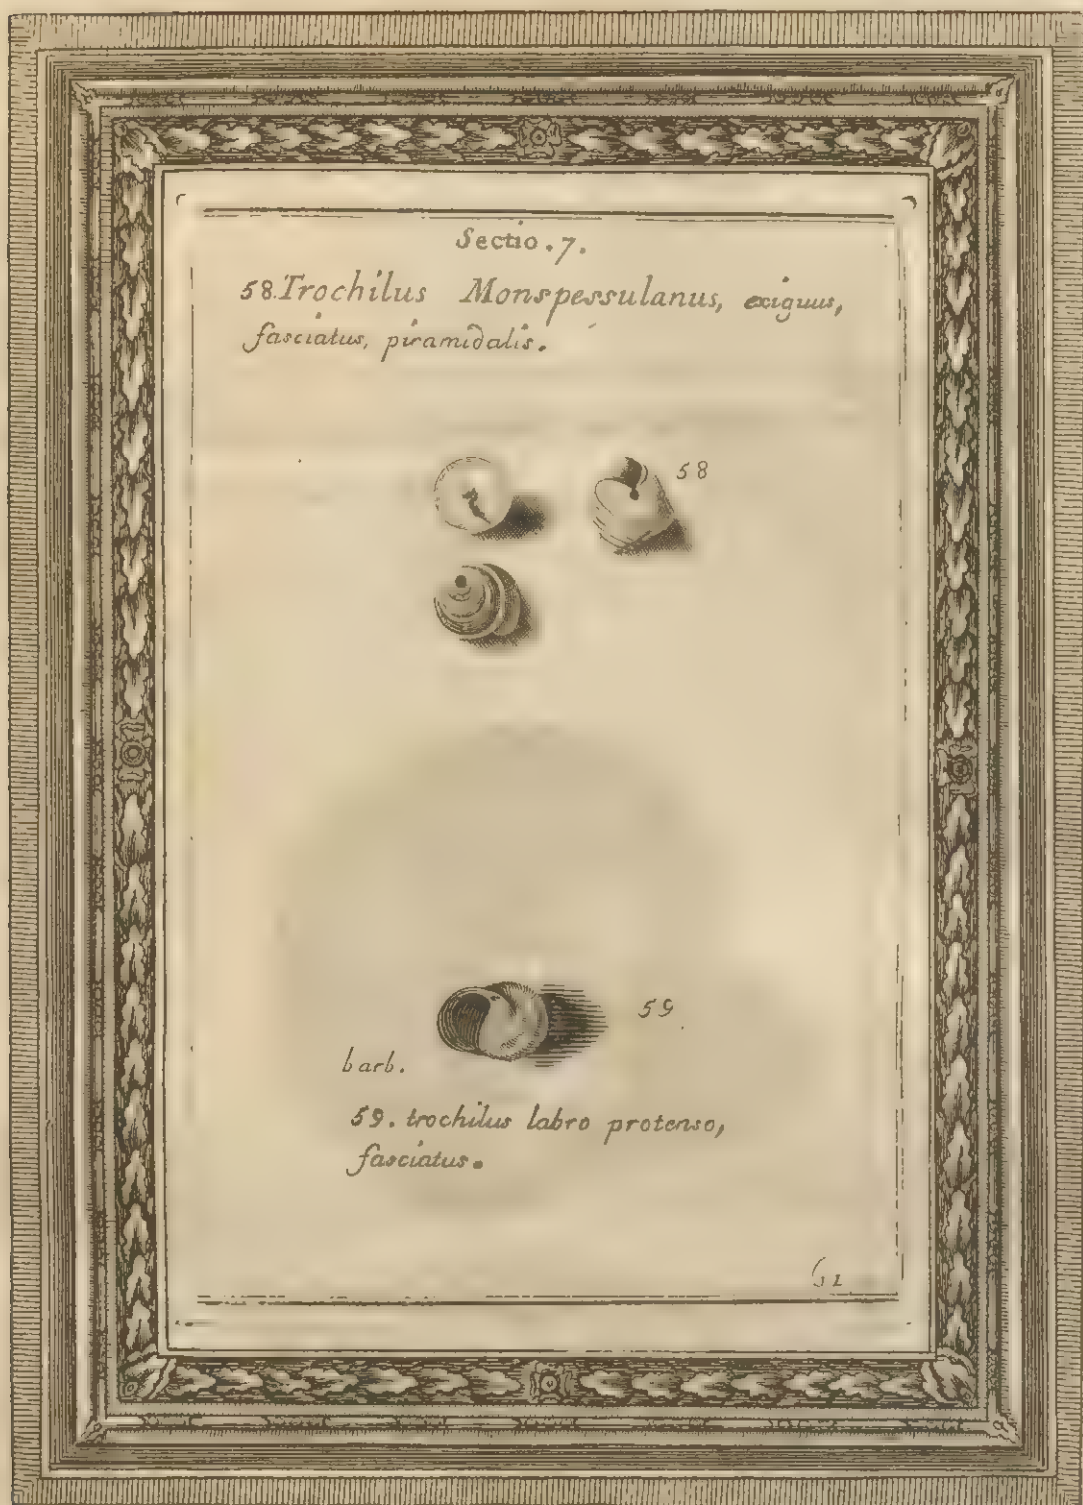 Sectio . 7.
58. Trochilus Monspessulanus, exiguus,
fasciatus, piramidalis.
58
59
barb.
59. trochilus labro protenso,
fasciatus.
61